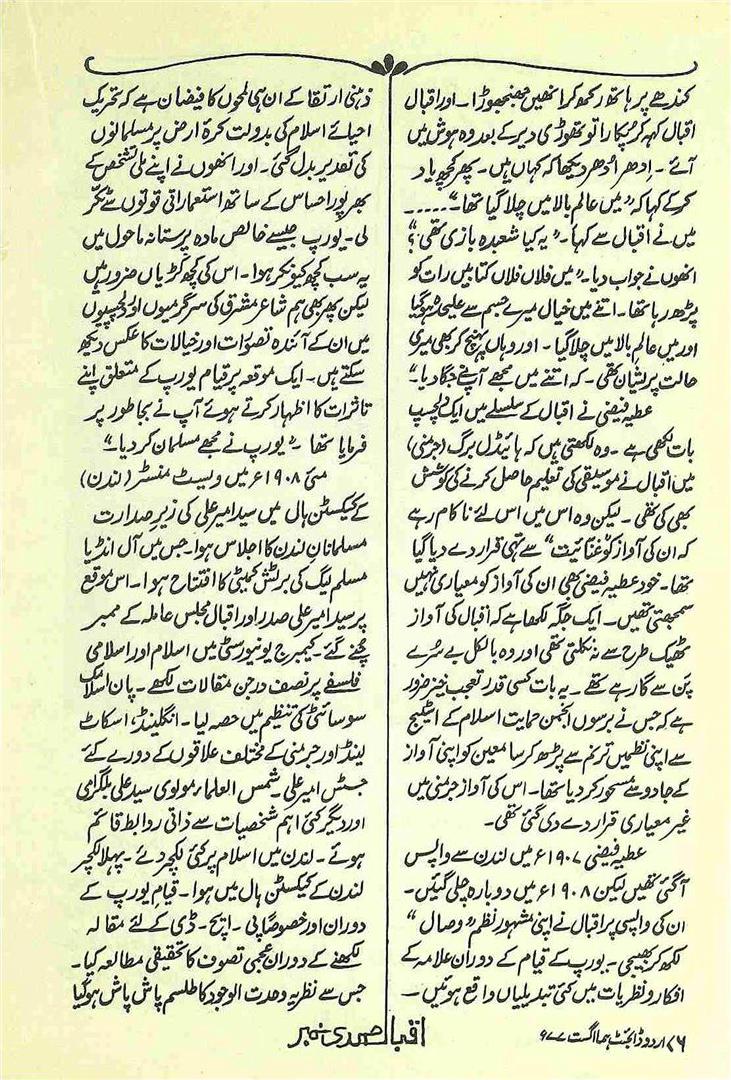 کندھے پر ہاتھ رکھ کر انھیں جھنجھوڑا۔ اور اقبال
اقبال کہہ کر پکارا تو تھوڑی دیر کے بعد وہ ہوش میں
آئے۔ اِدھر اُدھر دیکھا کہ کہاں ہیں۔ پھر کچھ یاد
کر کے کہا کہ "میں عالم بالا میں چلا گیا تھا"۔۔۔۔۔
میں نے اقبال سے کہا۔ "یہ کیا شعبدہ بازی تھی؟"
انھوں نے جواب دیا۔ "میں فلاں فلاں کتابیں رات کو
پڑھ رہا تھا۔ اتنے میں خیال میرے جسم سے علیحدہ ہو گیا
اور میں عالم بالا میں چلا گیا۔ اور وہاں پہنچ کر بھی میری
حالت پریشان تھی۔ کہ اتنے میں مجھے آپ نے جگا دیا۔"
عطیہ فیضی نے اقبال کے سلسلے میں ایک دلچسپ
بات لکھی ہے۔ وہ لکھتی ہیں کہ ہائیڈل برگ (جرمنی)
میں اقبال نے موسیقی کی تعلیم حاصل کرنے کی کوشش
بھی کی تھی۔ لیکن وہ اس میں اس لئے ناکام رہے
کہ ان کی آواز کو "غنائیت" سے تہی قرار دے دیا گیا
تھا۔ خود عطیہ فیضی بھی ان کی آواز کو معیاری نہیں
سمجھتی تھیں۔ ایک جگہ لکھا ہے کہ اقبال کی آواز
ٹھیک طرح سے نہ نکلتی تھی اور وہ بالکل بے سُرے
پن سے گا رہے تھے۔ یہ بات کسی قدر تعجب خیز ضرور
ہے کہ جس نے برسوں انجمن حمایت اسلام کے اسٹیج
سے اپنی نظمیں ترنم سے پڑھ کر سامعین کو اپنی آواز
کے جادو سے مسحور کر دیا تھا۔ اس کی آواز جرمنی میں
غیر معیاری قرار دے دی گئی تھی۔
عطیہ فیضی ۱۹۰۷ء میں لندن سے واپس
آ گئی تھیں لیکن ۱۹۰۸ء میں دوبارہ چلی گئیں۔
ان کی واپسی پر اقبال نے اپنی مشہور نظم "وصال"
لکھ کر بھیجی۔ یورپ کے قیام کے دوران علامہ کے
افکار و نظریات میں کئی تبدیلیاں واقع ہوئیں۔
ذہنی ارتقا کے ان ہی لمحوں کا فیضان ہے کہ تحریک
احیائے اسلام کی بدولت کرۂ ارض پر مسلمانوں
کی تقدیر بدل گئی۔ اور انھوں نے اپنے ملی تشخص کے
بھرپور احساس کے ساتھ استعماراتی قوتوں سے ٹکر
لی۔ یورپ جیسے خالص مادہ پرستانہ ماحول میں
یہ سب کچھ کیونکر ہوا۔ اس کی کچھ کڑیاں ضرور ہیں
لیکن پھر بھی ہم شاعر مشرق کی سرگرمیوں اور دلچسپیوں
میں ان کے آئندہ تصورات اور خیالات کا عکس دیکھ
سکتے ہیں۔ ایک موقعہ پر قیام یورپ کے متعلق اپنے
تاثرات کا اظہار کرتے ہوئے آپ نے بجا طور پر
فرمایا تھا۔ "یورپ نے مجھے مسلمان کر دیا۔"
مئی ۱۹۰۸ء میں ویسٹ منسٹر (لندن)
کے کیکسٹن ہال میں سید امیر علی کی زیر صدارت
مسلمانان لندن کا اجلاس ہوا۔ جس میں آل انڈیا
مسلم لیگ کی برٹش کمیٹی کا افتتاح ہوا۔ اس موقع
پر سید امیر علی صدر اور اقبال مجلس عاملہ کے ممبر
چُنے گئے۔ کیمبرج یونیورسٹی میں اسلام اور اسلامی
فلسفے پر نصف درجن مقالات لکھے۔ پان اسلامک
سوسائٹی کی تنظیم میں حصہ لیا۔ انگلینڈ، اسکاٹ
لینڈ اور جرمنی کے مختلف علاقوں کے دورے کئے
جسٹس امیر علی۔ شمس العلماء مولوی سید علی بلگرامی
اور دیگر کئی اہم شخصیات سے ذاتی روابط قائم
ہوئے۔ لندن میں اسلام پر کئی لکچر دئے۔ پہلا لکچر
لندن کے کیکسٹن ہال میں ہوا۔ قیام یورپ کے
دوران اور خصوصاً پی۔ ایچ۔ ڈی کے لئے مقالہ
لکھنے کے دوران عجمی تصوف کا تحقیقی مطالعہ کیا۔
جس سے نظریہ وحدت الوجود کا طلسم پاش پاش ہو گیا
۷۶/اردو ڈائجسٹ ہما اگست ۷۷ء
اقبال صدی نمبر